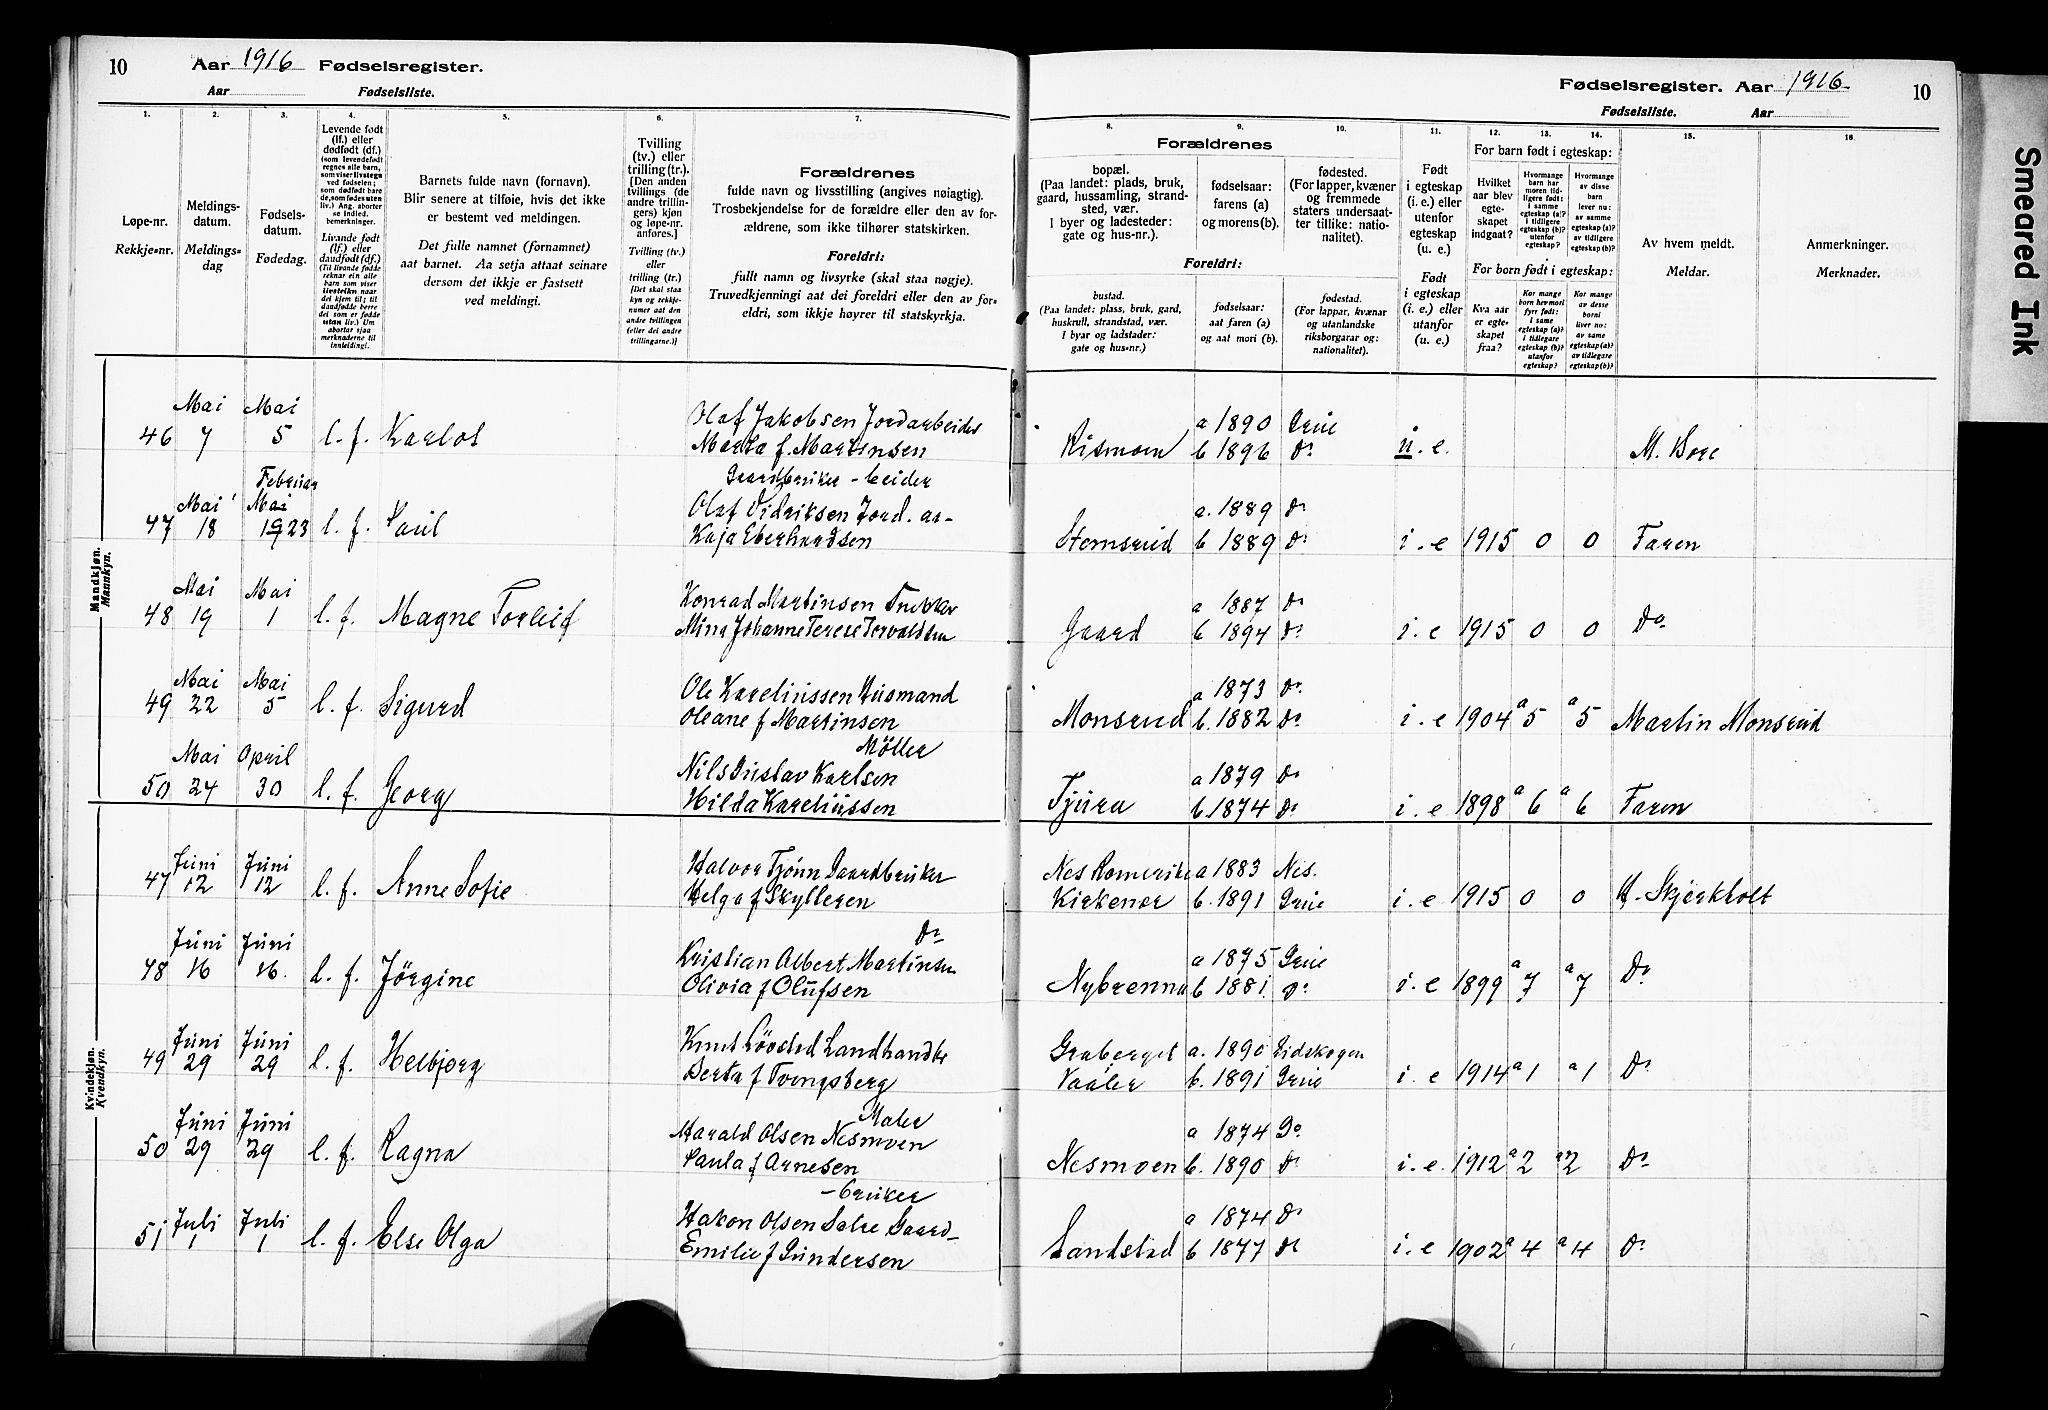 10 Aar 1916 Fødselsregister.
Aar Fødselsliste.
Fødselsregister. Aar 1916 10
Fødselsliste. Aar
Smeared Ink
1. 2. 3. 4. 5. 6. 7.
Løpe-nr.
Rekkje-nr.
Meldings-
datum.
Meldings-
dag
Fødsels-
datum.
Fødedag.
Levende født
(lf.) eller
dødfødt (df.)
(som levendefødt
regnes alle barn,
som viser livstegn
ved fødselen;
som dødfødt bare
de, som fødes uten
liv.) Ang. aborter
se indled.
bemerkninger.
Livande født
(lf.) eller
daudfødt (df.)
(Til livande fødde
reknar ein alle
born som viser
livsteikn naar
dei kjem til; til
daudfødde berre
dei som er fødde
utan liv.) Um
abortar sjaa
merknaderne til
innleiding!.
Barnets fulde navn (fornavn).
Blir senere at tilføie, hvis det ikke
er bestemt ved meldingen.
Det fulle namnet (fornamnet)
aat barnet. Aa setja attaat seinare
dersom det ikkje er fastsett
ved meldingi.
Tvilling
(tv.) eller
trilling (tr.).
[Den anden
tvillings (de
andre trillin-
gers) kjøn
og løpe-nr.
anføres.]
Tvilling (tv.)
eller
trilling (tr.)
[Det skal staa
kyn og rekkje-
numer aat den
andre tvillingen
(eller dei andre
trillingarne.)]
Forældrenes
fulde navn og livsstilling (angives nøiagtig).
Trosbekjendelse for de forældre eller den av for-
ældrene, som ikke tilhører statskirken.
Foreldri:
fullt namn og livsyrke (skal staa nøgje).
Truvedkjenningi aat dei foreldri eller den av for-
eldri, som ikkje høyrer til statskyrkja.
8. 9. 10. 11. 12. 13. 14. 15. 16.
Forældrenes
bopæl.
(Paa landet: plads, bruk,
gaard, hussamling, strand-
sted, vær.
I byer og ladesteder:
gate og hus-nr.).
fødselsaar:
farens (a)
og morens (b).
fødested.
(For lapper, kvæner
og fremmede
staters undersaat-
ter tillike: natio-
nalitet).
Foreldri:
bustad.
(Paa landet: plass, bruk, gard,
huskrull, strandstad, vær.
I byar og ladstader:
gate og hus-nr.)
fødselsaar:
aat faren (a)
og aat mori (b).
fødestad.
(For lappar, kvænar
og utanlandske
riksborgarar og:
nationalitet).
Født
i egteskap
(i. e.) eller
utenfor
egteskap
(u. e.)
Født
i egteskap
(i. e.) eller
utanfor
(u. e.)
For barn født i egteskap:
Hvilket
aar blev
egte-
skapet
indgaat?
Hvormange
barn har
moren tid-
ligere født:
i samme
egteskap (a)?
i tidligere
egteskap (b)?
utenfor
egteskap?
Hvormange
av disse
barn
lever nu:
av samme
egteskap (a)?
av tidligere
egteskap (b)?
For born født i egteskap:
Kva aar
er egte-
skapet
fraa?
Kor mange
born hev mori
fyrr født:
i same
egteskap (a)?
i tidlegare
egteskap (b)?
utanfor
egteskap?
Kor mange
av desse
borni
liver no:
av same
egteskap (a)?
av tidlegare
egteskap (b)?
Av hvem meldt.
Meldar.
Anmerkninger.
Merknader.
Mandkjøn.
Mannkyn.
Mai Mai Olaf Jakobsen Jordarbeider a 1890 Grue
46 7 5 l. f. Karlot Marta f. Martinsen Rismoen b 1896 Do u. e. M. Bore
Februar Gaardbruker - beider
Mai Mai Olaf Didriksen Jord. ar- a. 1889 Do
47 18 19 23 l. f. Paul Kaja Eberhardsen Stemsrud b 1889 Do i. e 1915 0 0 Faren
Mai Mai Konrad Martinsen a 1887 Do
48 19 1 l. f. Magne Torleif Mina Johanne Terese Torvaldsen Gaard b 1894 Do i. e 1915 0 0 Do
Mai Mai Ole Kareliussen Husmand a 1873 Do
49 22 5 l. f. Sigurd Oleane f Martinsen Monsrud b. 1882 Do i. e 1904 a 5 a 5 Martin Monsrud
Møller
Mai April Nils Gustav Karlsen a 1879 Do
50 24 30 l. f. Georg Hilda Kareliussen Tjura b. 1874 Do i. e 1898 a 6 a 6 Faren
Kvindekjøn.
Kvendkyn.
Juni Juni Halvor Tjønn Gaardbruker Nes Romerike a 1883 Nes.
47 12 12 l. f. Anne Sofie Helga f Skylleren Kirkener b. 1891 Grue i. e 1915 0 0 H. Skjerkholt
Do
Juni Juni Kristian Albert Martinsen a 1875 Grue
48 16 16. l. f. Jørgine Olivia f Olufsen Nybrenna b 1881 Do i. e 1899 a 7 a 7 Do
Juni Juni Knut Løvsted Landhandler Graberget a. 1890 Eidskogen
49 29 29 l. f. Helbjørg Berta f Tvengsberg Vaaler b. 1891 Grue i. e 1914 a 1 a 1 Do
Maler
Juni Juni Harald Olsen Nesmoen a 1874 Do
50 29 29 l. f. Ragna Paula f Arnesen Nesmoen b. 1890 Do i. e. 1912 a 2 a 2 Do
- bruker
Juli Juli Hakon Olsen Gaard- a 1874 Do
51 1 1 l. f. Else Olga Emilie f Gundersen Sandstad b 1877 Do i. e 1902 a 4 a 4 Do